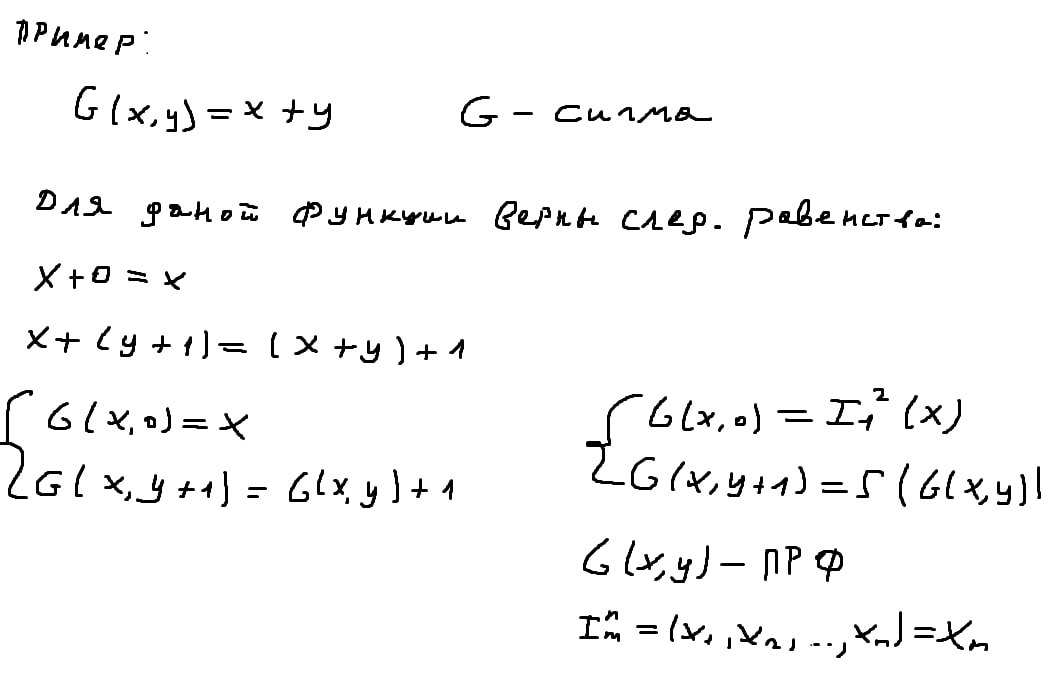 Пример:
G(x,y) = x + y    G – сигма
Для даной функции верны след. равенства:
x + 0 = x
x + (y + 1) = (x + y) + 1
{ G(x, 0) = x
G(x, y + 1) = G(x, y) + 1
{ G(x, 0) = I₁²(x)
G(x, y+1) = S(G(x,y)
G(x,y) – ПРФ
Iₘⁿ = (x₁, x₂, ..., xₙ) = xₙ